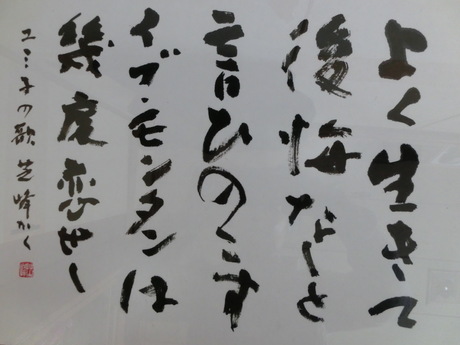 よく生きて
後悔なしと
言ひのこす
イブ・モンタンは
幾度恋せし
ユミ子の歌 芝峰かく